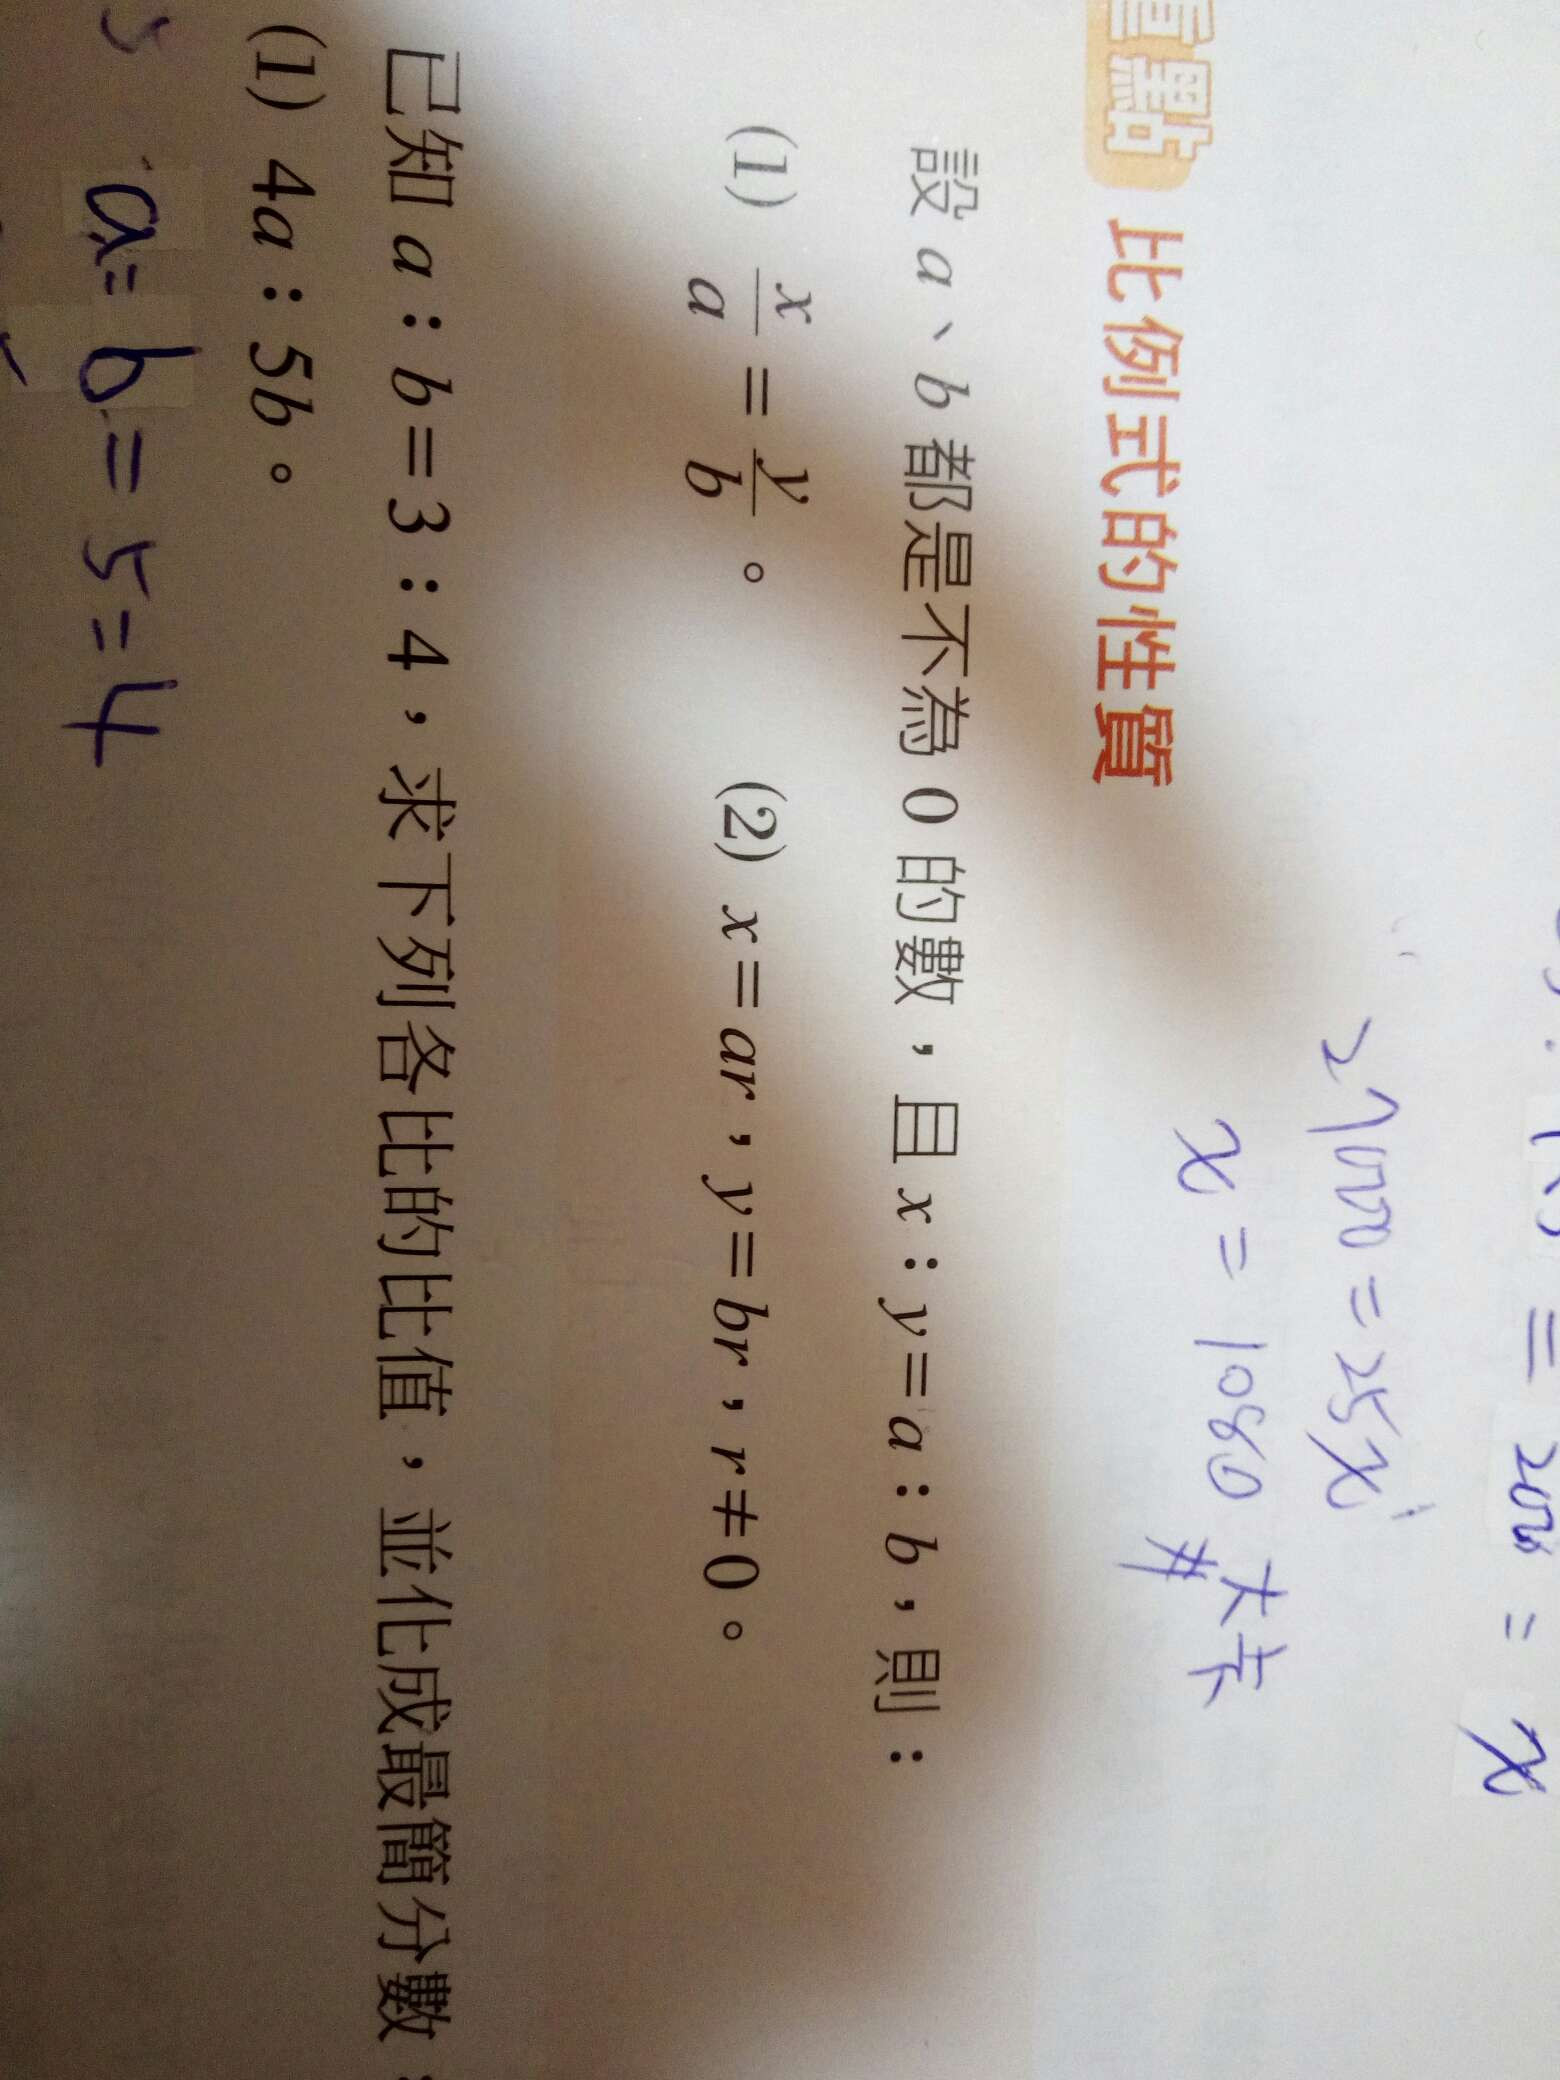 = 200 = x
27000 = 25x
x = 1080 大卡
#
重點 比例式的性質
設 a、b 都是不為 0 的數，且 x：y＝a：b，則：
(1) x/a = y/b。 (2) x＝ar，y＝br，r≠0。
已知 a：b＝3：4，求下列各比的比值，並化成最簡分數：
(1) 4a：5b。
a=b=5=4